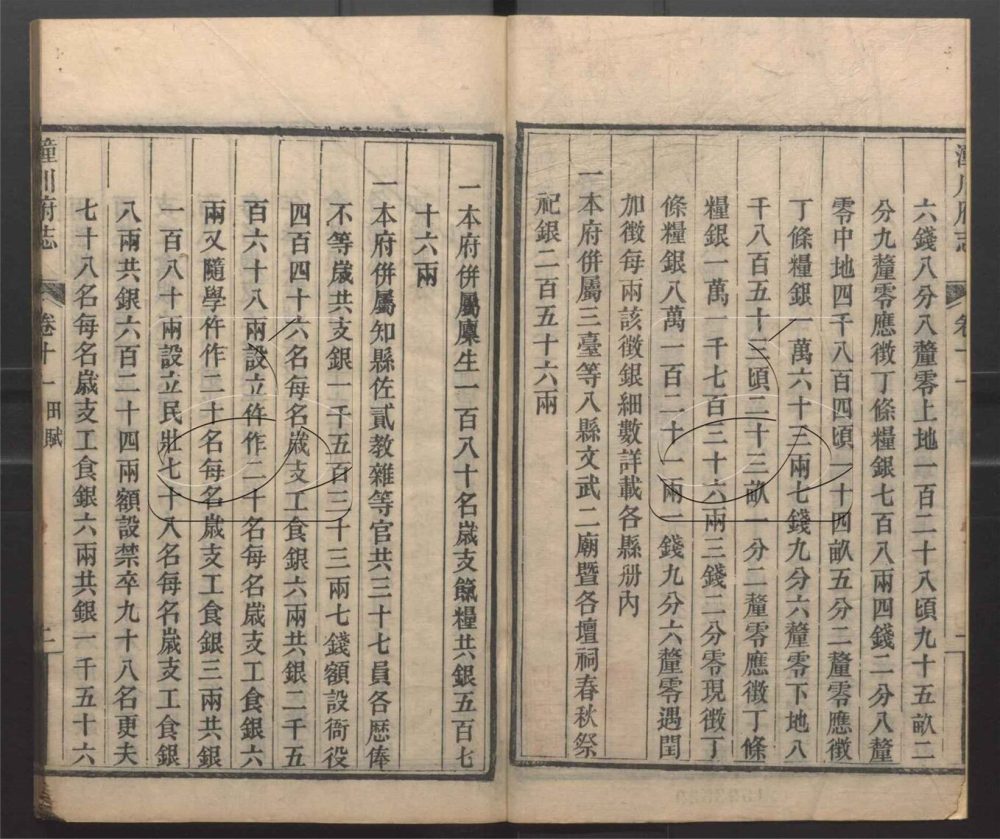 六錢八分八釐零上地一百二十八頃九十五畝二
分九釐零應徴丁條糧銀七百八兩四錢二分八釐
零中地四千八百四頃一十四畝五分二釐零應徴
丁條糧銀一萬六十三兩七錢九分六釐零下地八
千八百五十三頃二十三畝一分二釐零應徴丁條
糧銀一萬一千七百三十六兩三錢二分零現徴丁
條糧銀八萬一百二十一兩一錢九分六釐零遇閏
加徴每兩該徴銀細數詳載各縣册內
一本府併屬三臺等八縣文武二廟暨各壇祠春秋祭
祀銀二百五十六兩
一本府併屬廪生一百八十名嵗支餼糧共銀五百七
十六兩
一本府併屬知縣佐貳教雜等官共三十七員各歴俸
不等嵗共支銀一千五百三十三兩七錢額設衙役
四百四十六名每名嵗支工食銀六兩共銀二千五
百六十八兩設立仵作二千名每名嵗支工食銀六
兩又隨學仵作二十名每名嵗支工食銀三兩共銀
一百八十兩設立民壯七十八名每名嵗支工食銀
八兩共銀六百二十四兩額設禁卒九十八名更夫
七十八名每名嵗支工食銀六兩共銀一千五十六
潼川府志
卷十一 田賦
二